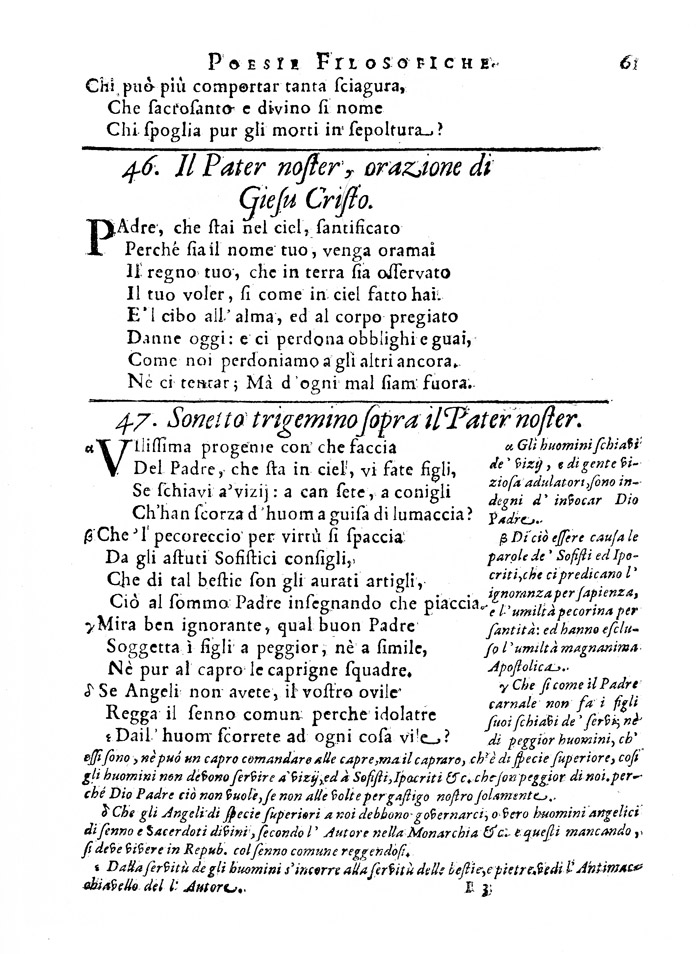 POESIE FILOSOFICHE. 61
Chi può più comportar tanta sciagura,
Che sacrosanto e divino si nome
Chi spoglia pur gli morti in sepoltura?
46. Il Pater noſter, orazione di
Gieſu Criſto.
PAdre, che ſtai nel ciel, ſantificato
Perché ſia il nome tuo, venga oramai
Il regno tuo, che in terra ſia oſſervato
Il tuo voler, ſi come in ciel fatto hai.
E'l cibo all' alma, ed al corpo pregiato
Danne oggi: e ci perdona obblighi e guai,
Come noi perdoniamo a gli altri ancora.
Né ci tentar; Mà d'ogni mal ſiam fuora.
47. Sonetto trigemino ſopra il Pater noſter.
α VIliſſima progenie con che faccia
Del Padre, che ſta in ciel, vi fate figli,
Se ſchiavi a'vizij: a can ſete, a conigli
Ch'han ſcorza d'huom a guiſa di lumaccia?
β Che 'l pecoreccio per virtù ſi ſpaccia
Da gli aſtuti Sofiſtici conſigli,
Che di tal beſtie ſon gli aurati artigli,
Ciò al ſommo Padre inſegnando che piaccia.
γ Mira ben ignorante, qual buon Padre
Soggetta i figli a peggior, nè a ſimile,
Nè pur al capro le caprigne ſquadre.
δ Se Angeli non avete, il voſtro ovile
Regga il ſenno comun perche idolatre
ε Dall' huom ſcorrete ad ogni coſa vile?
α Gli huomini ſchiavi
de' vizij, e di gente vi-
zioſa adulatori, ſono in-
degni d' invocar Dio
Padre.
β Di ciò eſſere cauſa le
parole de' Sofiſti ed Ipo-
criti, che ci predicano l'
ignoranza per ſapienza,
e l'umiltà pecorina per
ſantità: ed hanno eſclu-
ſo l'umiltà magnanima
Apoſtolica.
γ Che ſi come il Padre
carnale non fa i figli
ſuoi ſchiavi de' ſervi, nè
di peggior huomini, ch'
eſſi ſono, nè può un capro comandare alle capre, ma il capraro, ch'è di ſpecie ſuperiore, coſi
gli huomini non devono ſervire a'vizij, ed à Sofiſti, Ipocriti &c. che ſon peggior di noi. per-
ché Dio Padre ciò non vuole, ſe non alle volte per gaſtigo noſtro ſolamente.
δ Che gli Angeli di ſpecie ſuperiori a noi debbono governarci, o vero huomini angelici
di ſenno e Sacerdoti divini, ſecondo l' Autore nella Monarchia &c. e queſti mancando,
ſi deve vivere in Repub. col ſenno comune reggendoſi.
ε Dalla ſervitù de gli huomini s'incorre alla ſervitù delle beſtie, e pietre. vedi l'Antimac-
chiavello del l' Autore. I 3